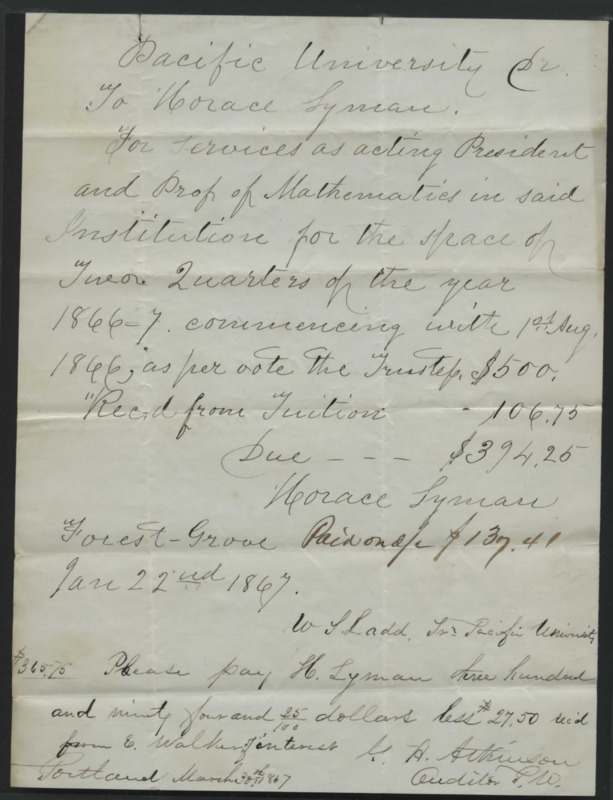 Pacific University Dr.
To Horace Lyman.
For services as acting President
and Prof of Mathematics in said
Institution for the space of
Two Quarters of the year
1866-7. commencing with 1st Aug.
1866, as per vote the Trustees. $500.
"Rec'd from Tuition - 106.75
Due - - - $394.25
Horace Lyman
Forest-Grove Paid on a/c $137.41
Jan 22nd 1867.
W S Ladd, Trs Pacific University
$365.75 Please pay H. Lyman three hundred
and ninety four and 25/100 dollars less $27.50 rec'd
from E. Walker interest G. H. Atkinson
Portland March 30th 1867 Auditor P.U.